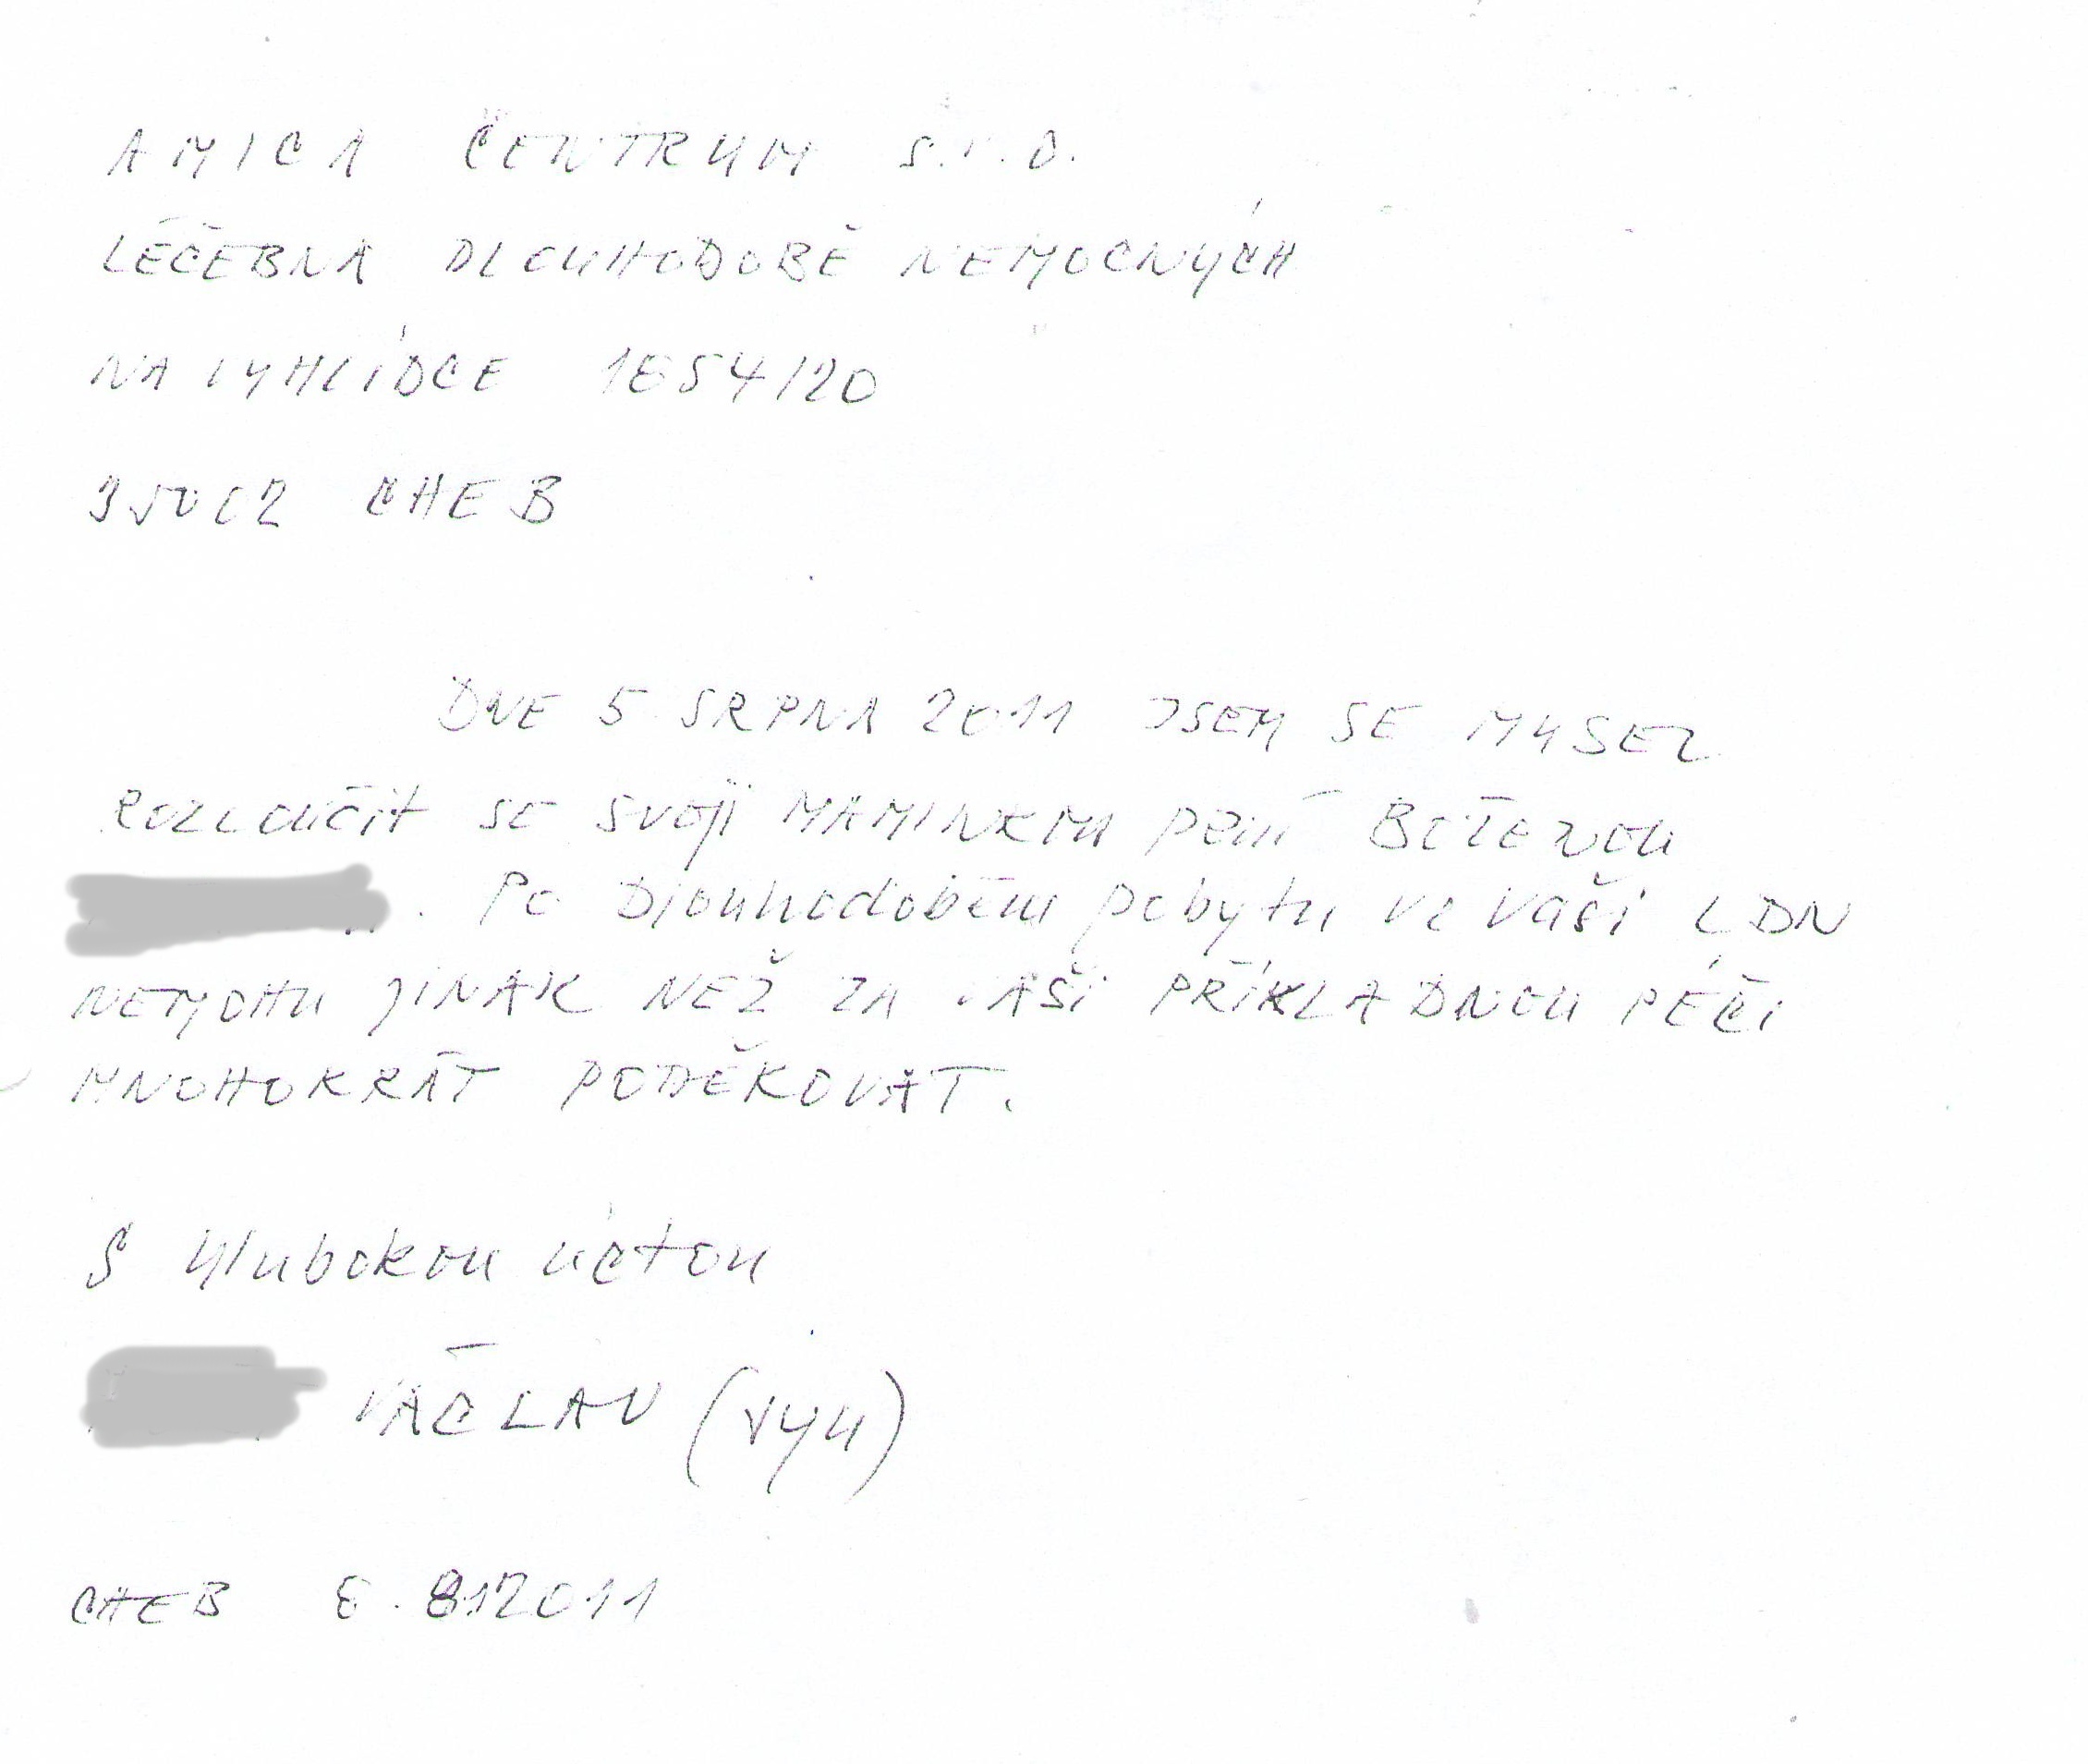 AMICA CENTRUM s.r.o.
LÉČEBNA DLOUHODOBĚ NEMOCNÝCH
NA VYHLÍDCE 1654/20
35002 CHEB
DNE 5 SRPNA 2011 JSEM SE MUSEL
ROZLOUČit se svojí MAMINKOU paní BOŽENOU
. Po Dlouhodobém pobytu ve vaší LDN
NEMOHU JINAK NEŽ ZA VAŠÍ PŘÍKLADNOU PÉČI
MNOHOKRÁT PODĚKOVAT.
S hlubokou úctou
VÁCLAV (syn)
CHEB 8.8.2011